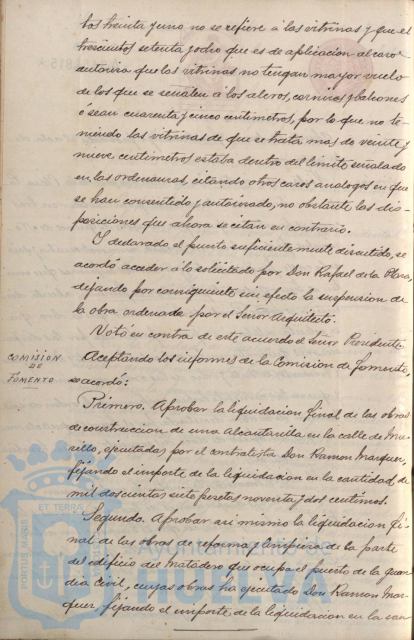 tos treinta y uno no se refiere á las vitrinas y que el
trescientos setenta y ocho que es de aplicacion al caso
autoriza que las vitrinas no tengan mayor vuelo
de los que se señalen á los aleros, cornisas y balcones
ó sean cuarenta y cinco centimetros, por lo que no te-
niendo las vitrinas de que se trata mas de veinte y
nueve centimetros estaba dentro del limite señalado
en las ordenanzas, citando otros casos analogos en que
se han consentido y autorizado, no obstante las dis-
posiciones que ahora se citan en contrario.
Y declarado el punto suficientemente discutido, se
acordó acceder á lo solicitado por Don Rafael de la
dejando por consiguiente sin efecto la suspension de
la obra ordenada por el Señor Arquitecto.
Votó en contra de este acuerdo el Señor Presidente.
COMISION
DE
FOMENTO
Aceptando los informes de la Comision de Fomento,
se acordó:
Primero. Aprobar la liquidacion final de las obras
de construccion de una Alcantarilla en la calle de Mu-
rillo, ejecutadas por el contratista Don Ramon Marquez,
fijando el importe de la liquidacion en la cantidad de
mil doscientas siete pesetas noventa y dos centimos.
Segundo. Aprobar asi mismo la liquidacion fi-
nal de las obras de reforma y limpieza de la parte
del edificio del Matadero que ocupa el puesto de la guar-
dia civil, cuyas obras ha ejecutado Don Ramon Mar-
quez, fijando el importe de la liquidacion en la can-
PORTUS MARIS
ET TERRAE
Ayuntamiento de
HUELVA